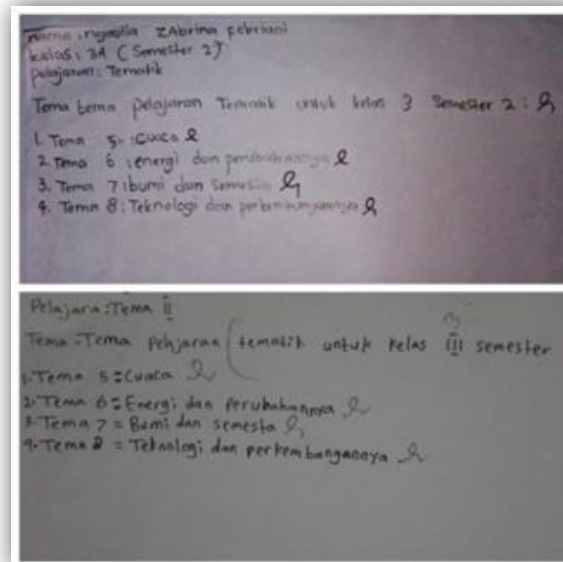 nama : Zabrina febriani
kelas : 3A (Semester 2)
pelajaran : Tematik
Tema tema pelajaran Tematik untuk kelas 3 Semester 2 :
1. Tema 5 : Cuaca
2. Tema 6 : energi dan perubahannya
3. Tema 7 : bumi dan Semesta
4. Tema 8 : Teknologi dan perkembangannya
Pelajara : Tema II
Tema - Tema Pelajaran (tematik untuk kelas III semester
1. Tema 5 = Cuaca
2. Tema 6 = Energi dan Perubahannya
3. Tema 7 = Bumi dan semesta
4. Tema 8 = Teknologi dan perkembangannya